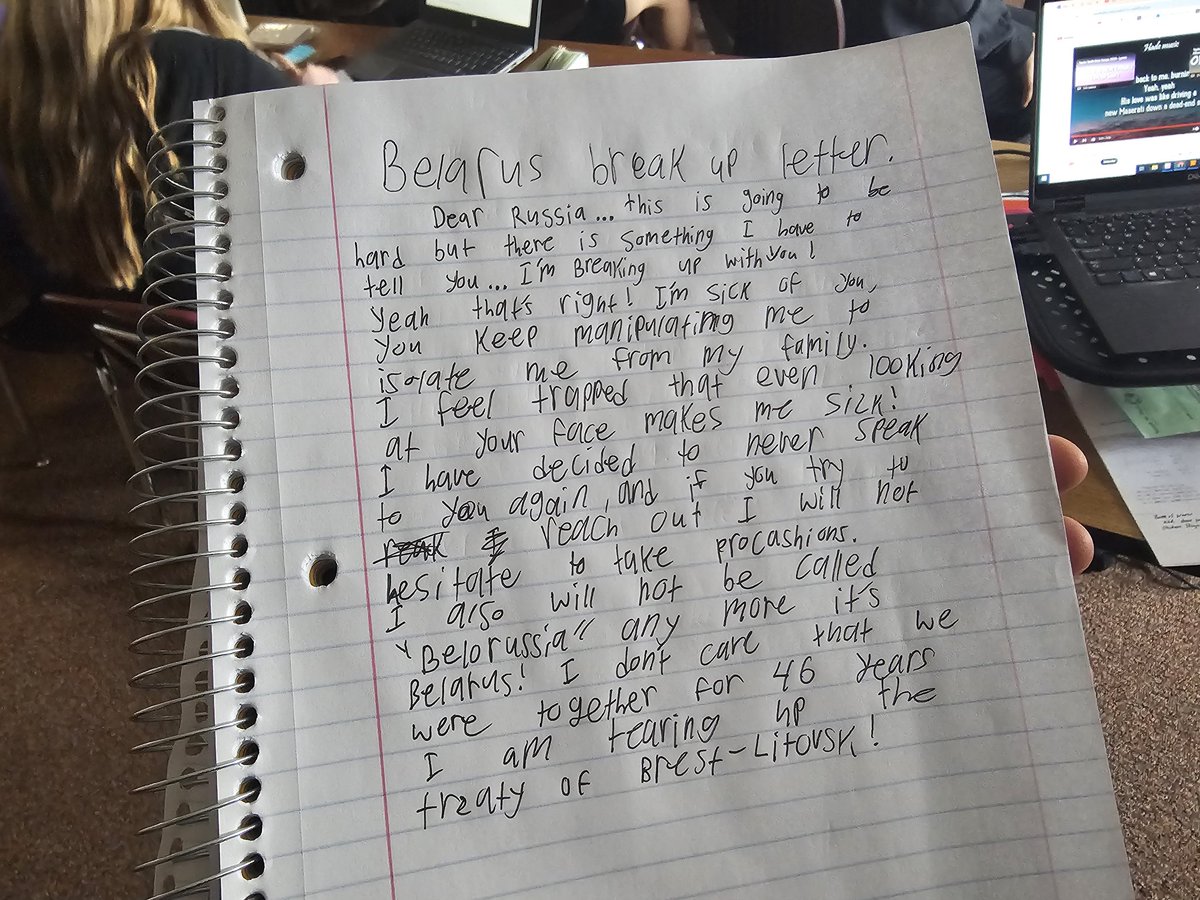 Belarus break up letter.
Dear Russia... this is going to be
hard but there is something I have to
tell you... I'm Breaking up with you!
Yeah that's right! I'm sick of you,
you keep manipulating me to
isolate me from my family.
I feel trapped that even looking
at your face makes me sick!
I have decided to never speak
to you again, and if you try to
reach out I will not
hesitate to take procashions.
I also will not be called
"Belorussia" any more it's
Belarus! I don't care that we
were together for 46 years
I am tearing up the
treaty of Brest-Litovsk!
Hade music
back to me, burnin
Yeah, yeah
His love was like driving a
new Maserati down a dead-end s